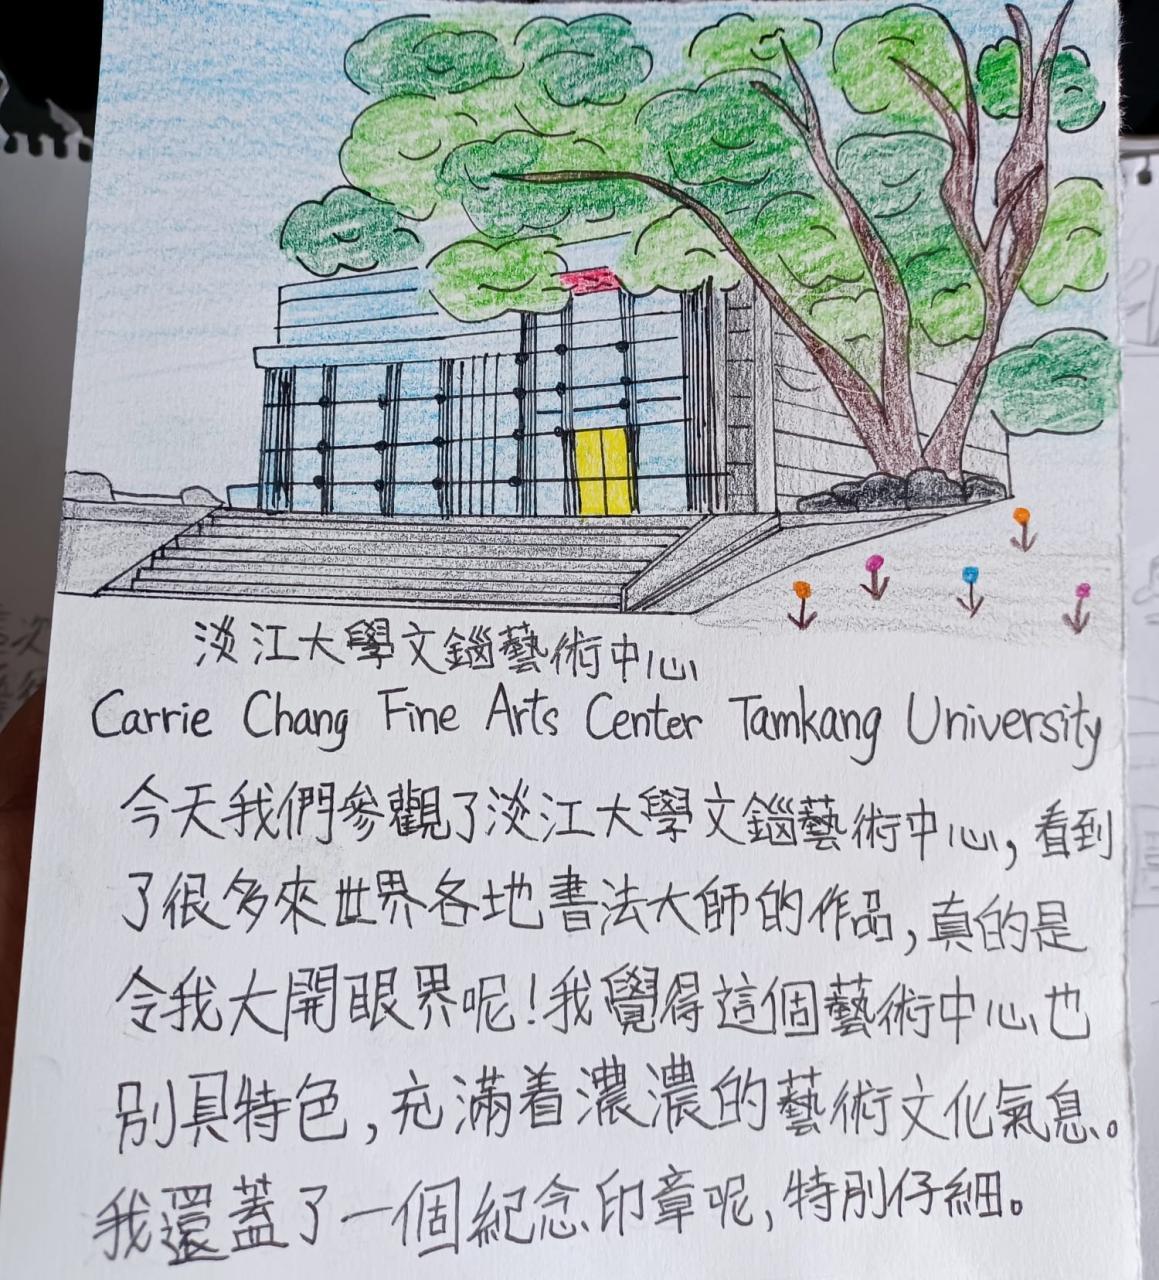 淡江大學文錙藝術中心
Carrie Chang Fine Arts Center Tamkang University
今天我們參觀了淡江大學文錙藝術中心,看到
了很多來世界各地書法大師的作品,真的是
令我大開眼界呢!我覺得這個藝術中心也
別具特色,充滿着濃濃的藝術文化氣息。
我還蓋了一個紀念印章呢,特別仔細。